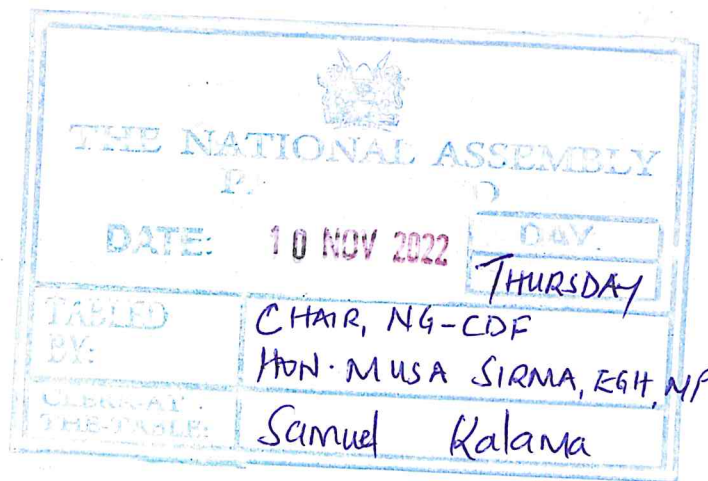 THE NATIONAL ASSEMBLY
DATE: 10 NOV 2022
DAY.
THURSDAY
TABLED BY:
CHAIR, NG-CDF
HON. MUSA SIRMA, EGH, MP
CLERK-AT THE-TABLE:
Samuel Kalama